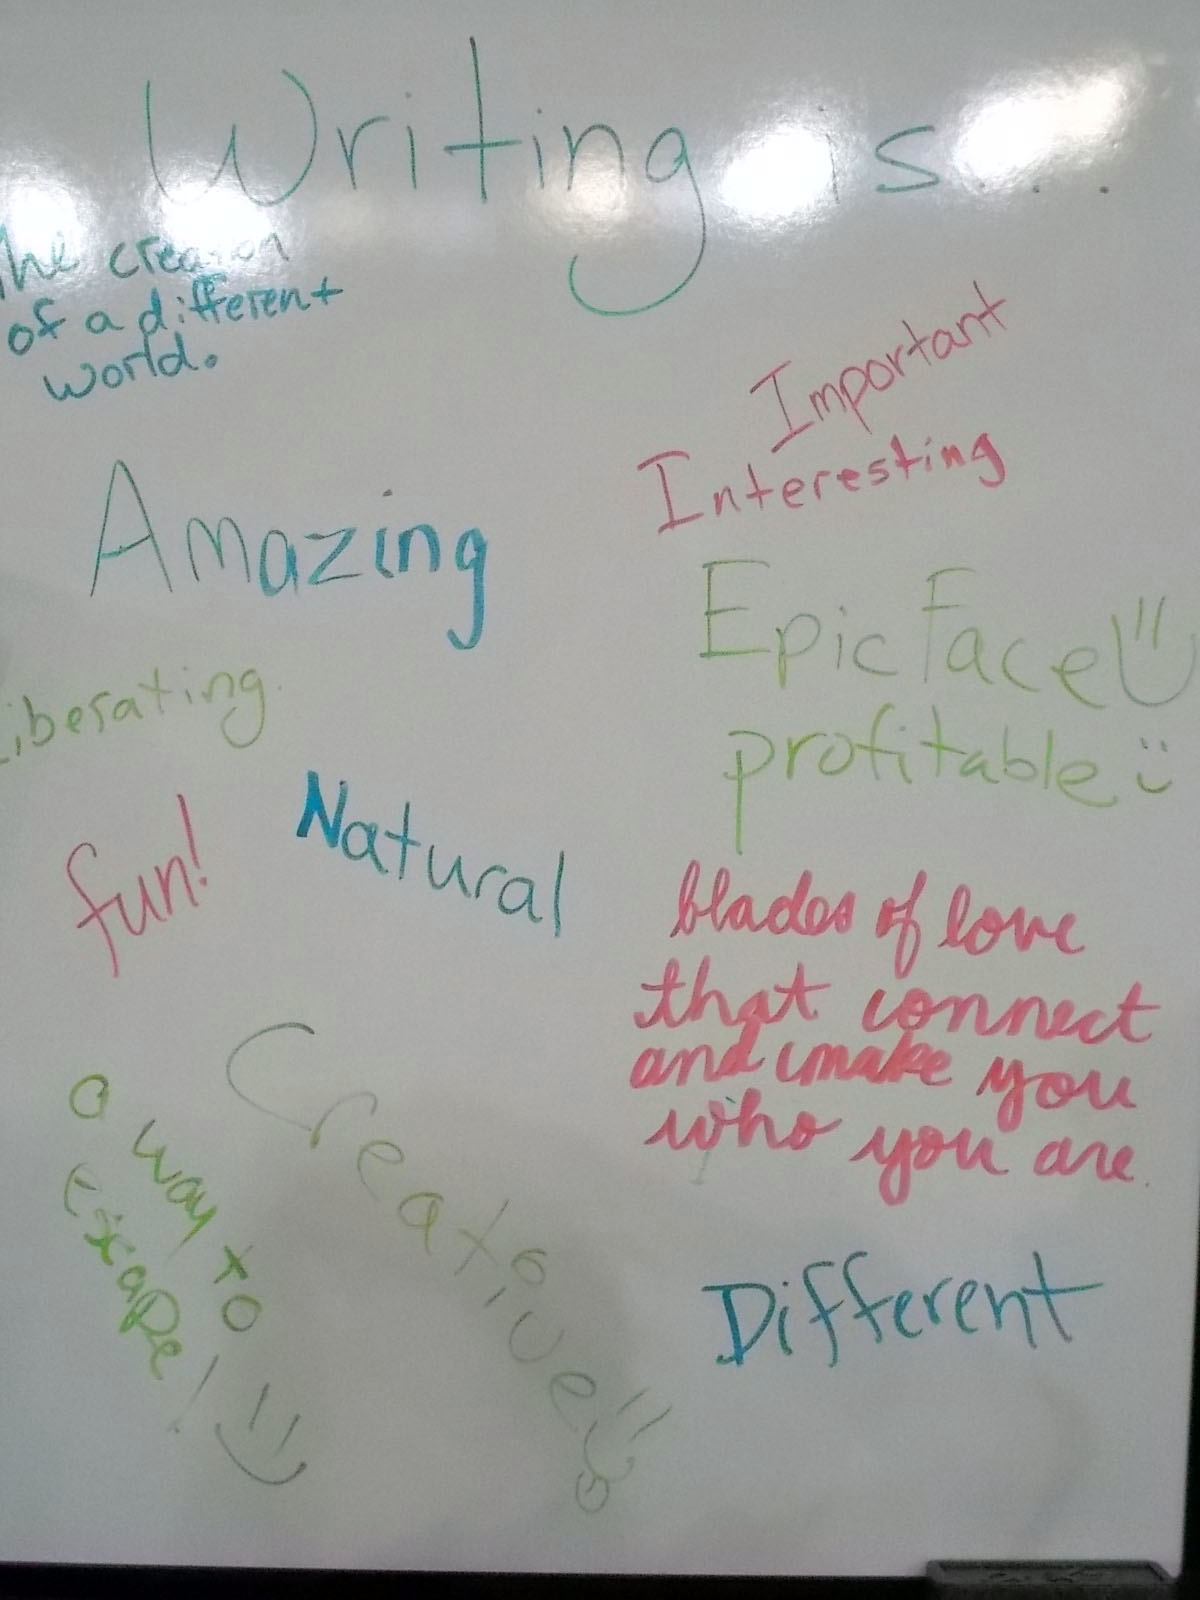 Writing is...
The creation
of a different
world.
Important
Interesting
Amazing
Epic Face
Liberating.
profitable :)
fun!
Natural
blades of love
that connect
and make you
who you are.
Creative!
a way to
escape!
Different